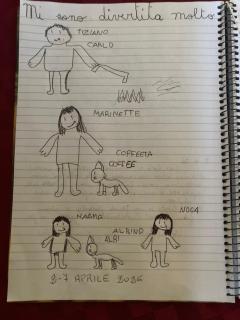 Mi sono divertita molto
TIZIANO
CARLO
MARINETTE
COFFEETA
COFFEE
NOGA
ALBINO
ALBI
APRILE